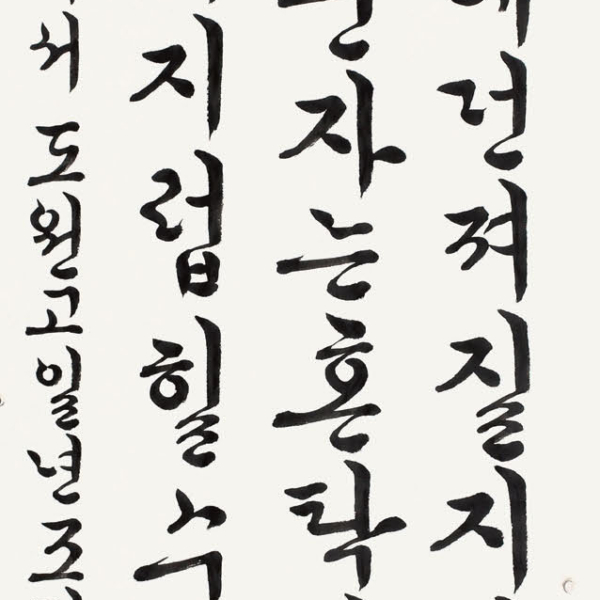 던져질지
자는혼탁
지럽힐수
서도원고일년조